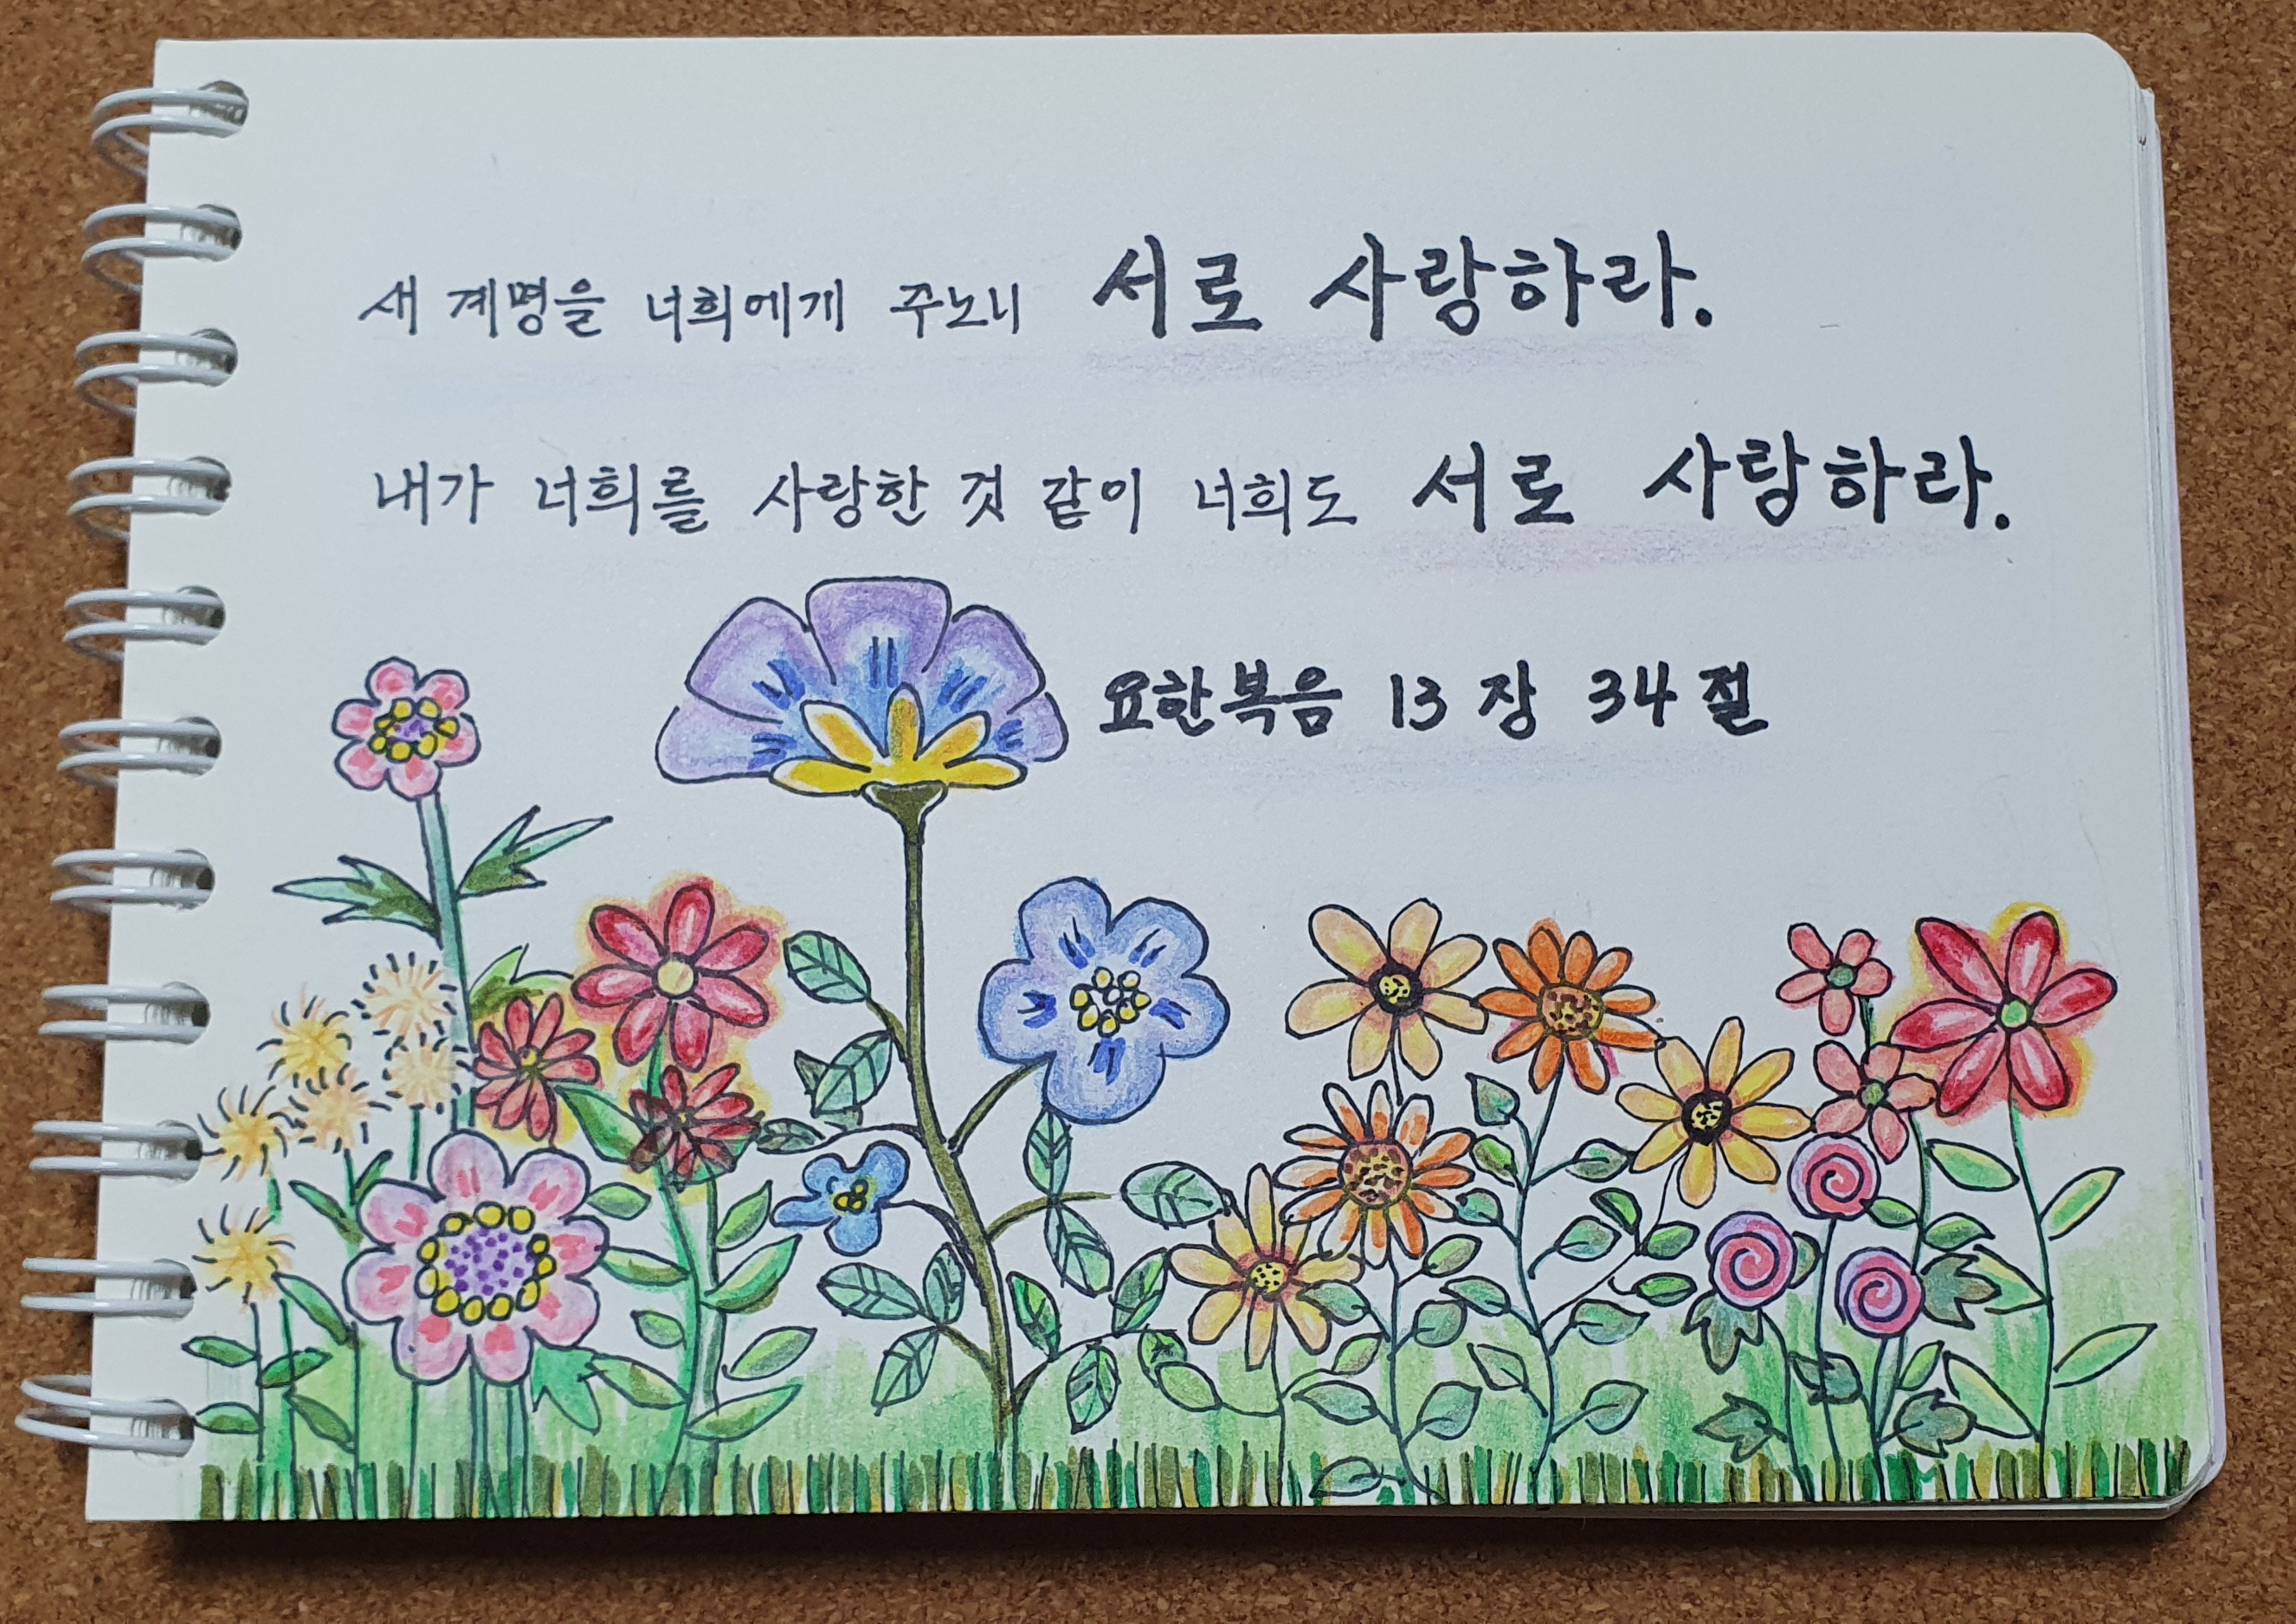 새 계명을 너희에게 주노니 서로 사랑하라.
내가 너희를 사랑한 것 같이 너희도 서로 사랑하라.
요한복음 13장 34절